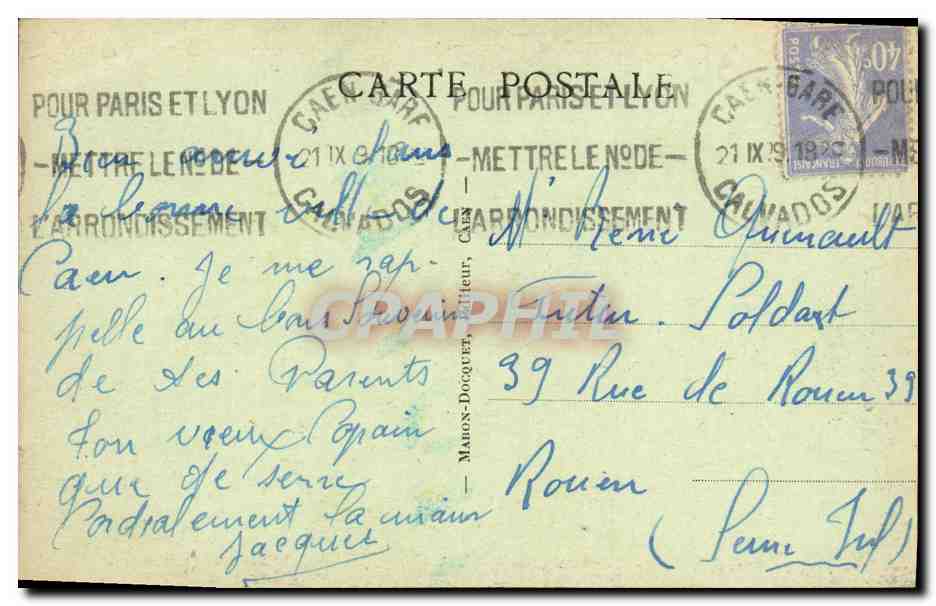 CARTE POSTALE
POUR PARIS ET LYON
-METTRE LE No DE
L'ARRONDISSEMENT
CAEN-GARE
21 IX
CALVADOS
POUR PARIS ET LYON
-METTRE LE No DE-
L'ARRONDISSEMENT
CAEN-GARE
21 IX
CALVADOS
40c
POSTES
Bon
la bonne ville de
Caen. Je me rap-
pelle au bon Souvenir
de tes Parents
Ton vieux Copain
que te serre
Cordialement la main
Jacques
— MARON-DOCQUET, Éditeur, CAEN —
Mr René
Futur Soldat
39 Rue de Rouen 39
Rouen
(Seine Inf)
CPAPHIL